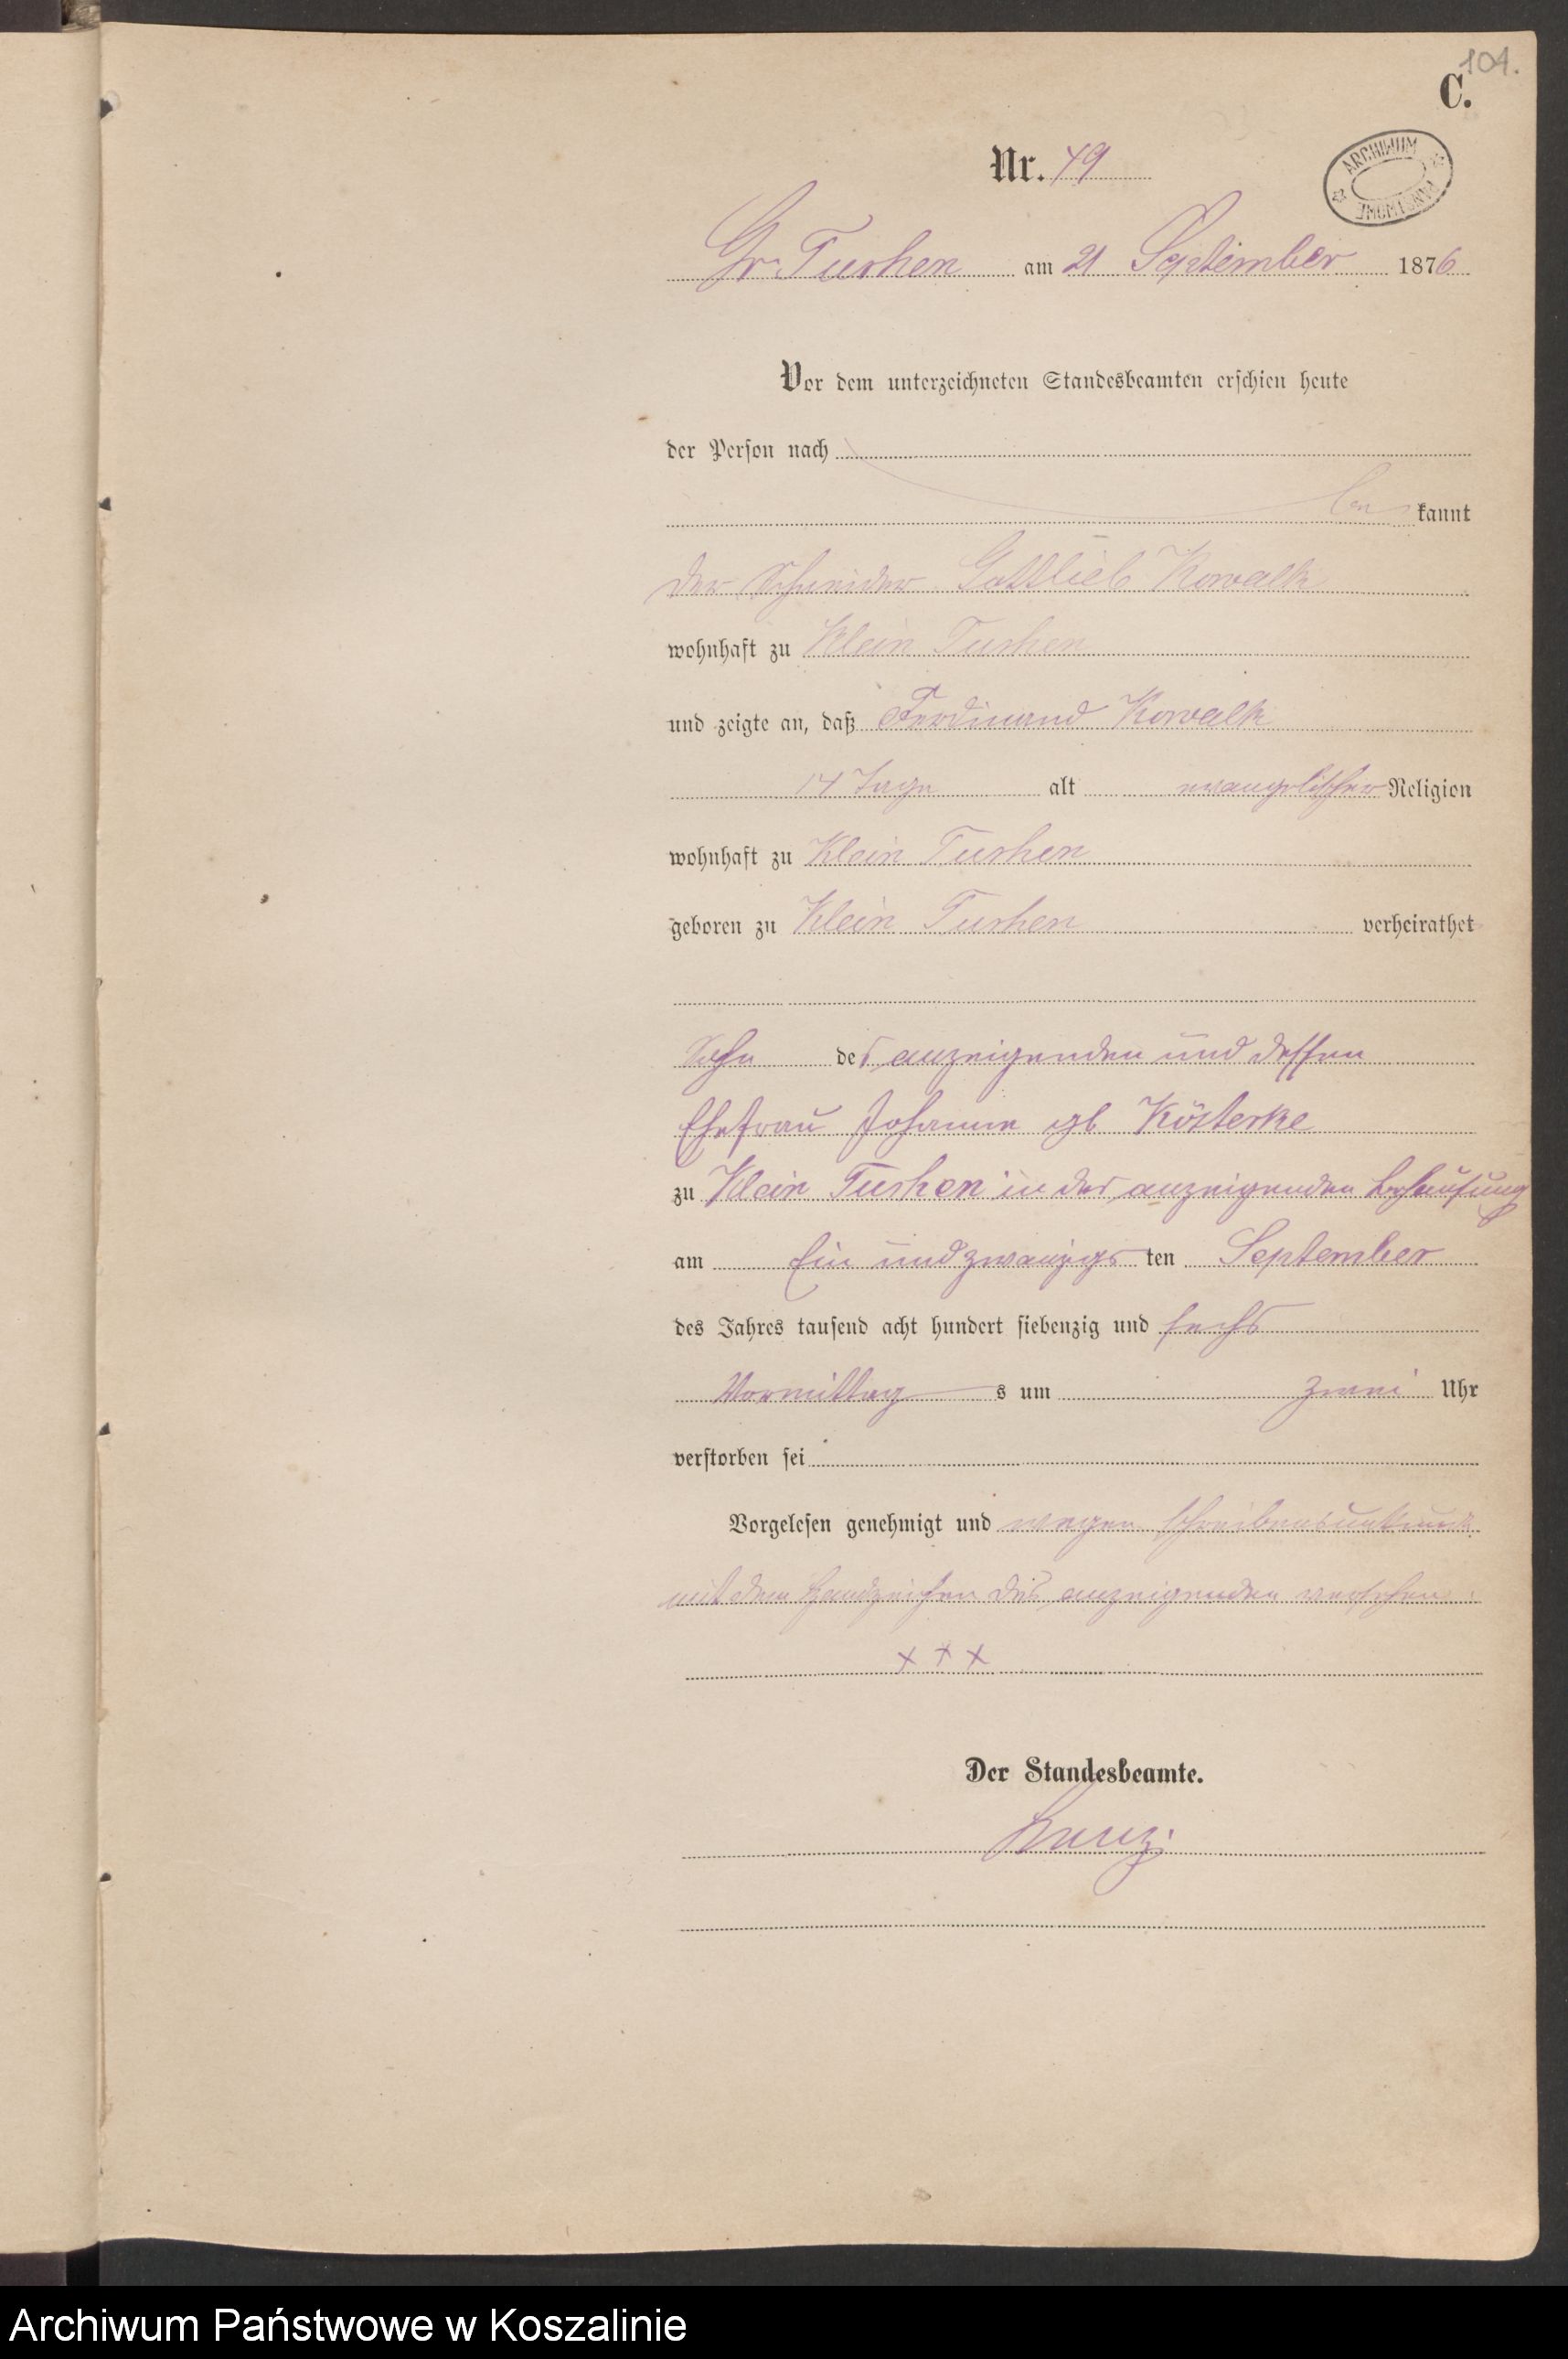 104.
C.
Nr. 49
ARCHIWUM PAŃSTWOWE
Gr. Tuchen am 21 September 1876
Vor dem unterzeichneten Standesbeamten erschien heute
der Person nach
be kannt
der Schneider Gottlieb Kowalk
wohnhaft zu Klein Tuchen
und zeigte an, daß Ferdinand Kowalk
14 Tage alt evangelischer Religion
wohnhaft zu Klein Tuchen
geboren zu Klein Tuchen verheirathet
Sohn des anzeigenden und dessen
Ehefrau Johanne gb Kösterke
zu Klein Tuchen in des anzeigenden behausung
am Ein und zwanzigs ten September
des Jahres tausend acht hundert siebenzig und sechs
Vormittag s um zwei Uhr
verstorben sei
Vorgelesen genehmigt und wegen schreibensunkunde
mit dem handzeichen des anzeigenden versehen
+ + +
Der Standesbeamte.
Archiwum Państwowe w Koszalinie